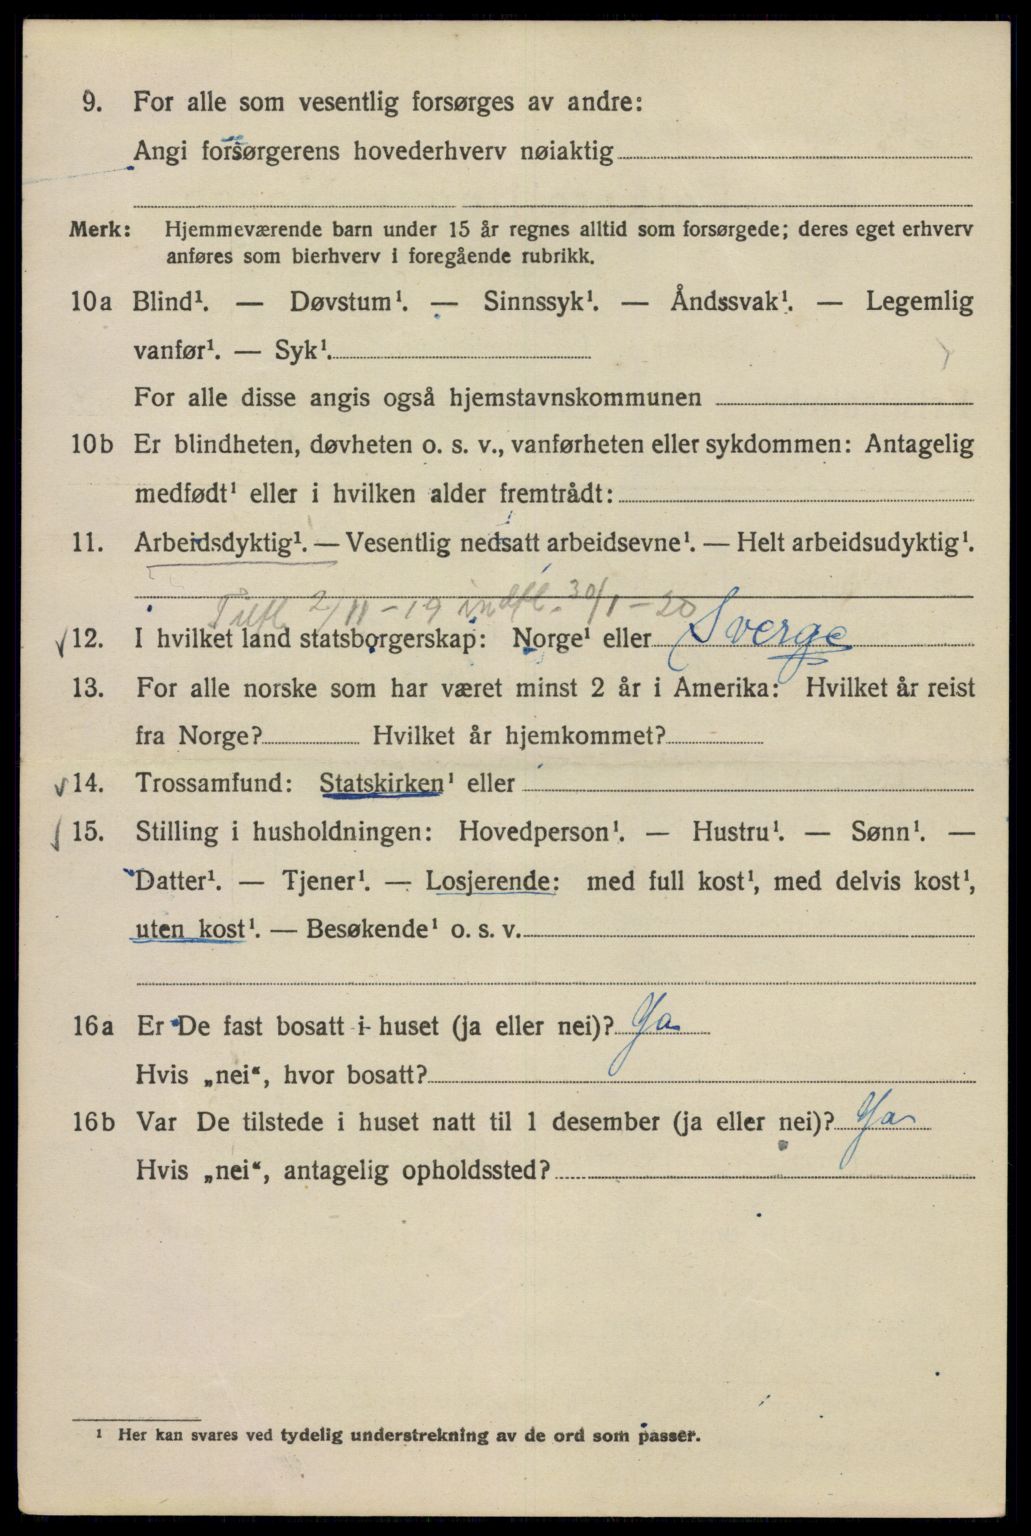 9. For alle som vesentlig forsørges av andre:
Angi forsørgerens hovederhverv nøiaktig
Merk: Hjemmeværende barn under 15 år regnes alltid som forsørgede; deres eget erhverv
anføres som bierhverv i foregående rubrikk.
10a Blind¹. — Døvstum¹. — Sinnssyk¹. — Åndssvak¹. — Legemlig
vanfør¹. — Syk¹.
For alle disse angis også hjemstavnskommunen
10b Er blindheten, døvheten o. s. v., vanførheten eller sykdommen: Antagelig
medfødt¹ eller i hvilken alder fremtrådt:
11. Arbeidsdyktig¹. — Vesentlig nedsatt arbeidsevne¹. — Helt arbeidsudyktig¹.
Tilfl. 2/11-19 indfl. 30/1-20
12. I hvilket land statsborgerskap: Norge¹ eller Sverge
13. For alle norske som har været minst 2 år i Amerika: Hvilket år reist
fra Norge? Hvilket år hjemkommet?
14. Trossamfund: Statskirken¹ eller
15. Stilling i husholdningen: Hovedperson¹. — Hustru¹. — Sønn¹. —
Datter¹. — Tjener¹. — Losjerende: med full kost¹, med delvis kost¹,
uten kost¹. — Besøkende¹ o. s. v.
16a Er De fast bosatt i huset (ja eller nei)? Ja
Hvis „nei“, hvor bosatt?
16b Var De tilstede i huset natt til 1 desember (ja eller nei)? Ja
Hvis „nei“, antagelig opholdssted?
¹ Her kan svares ved tydelig understrekning av de ord som passer.